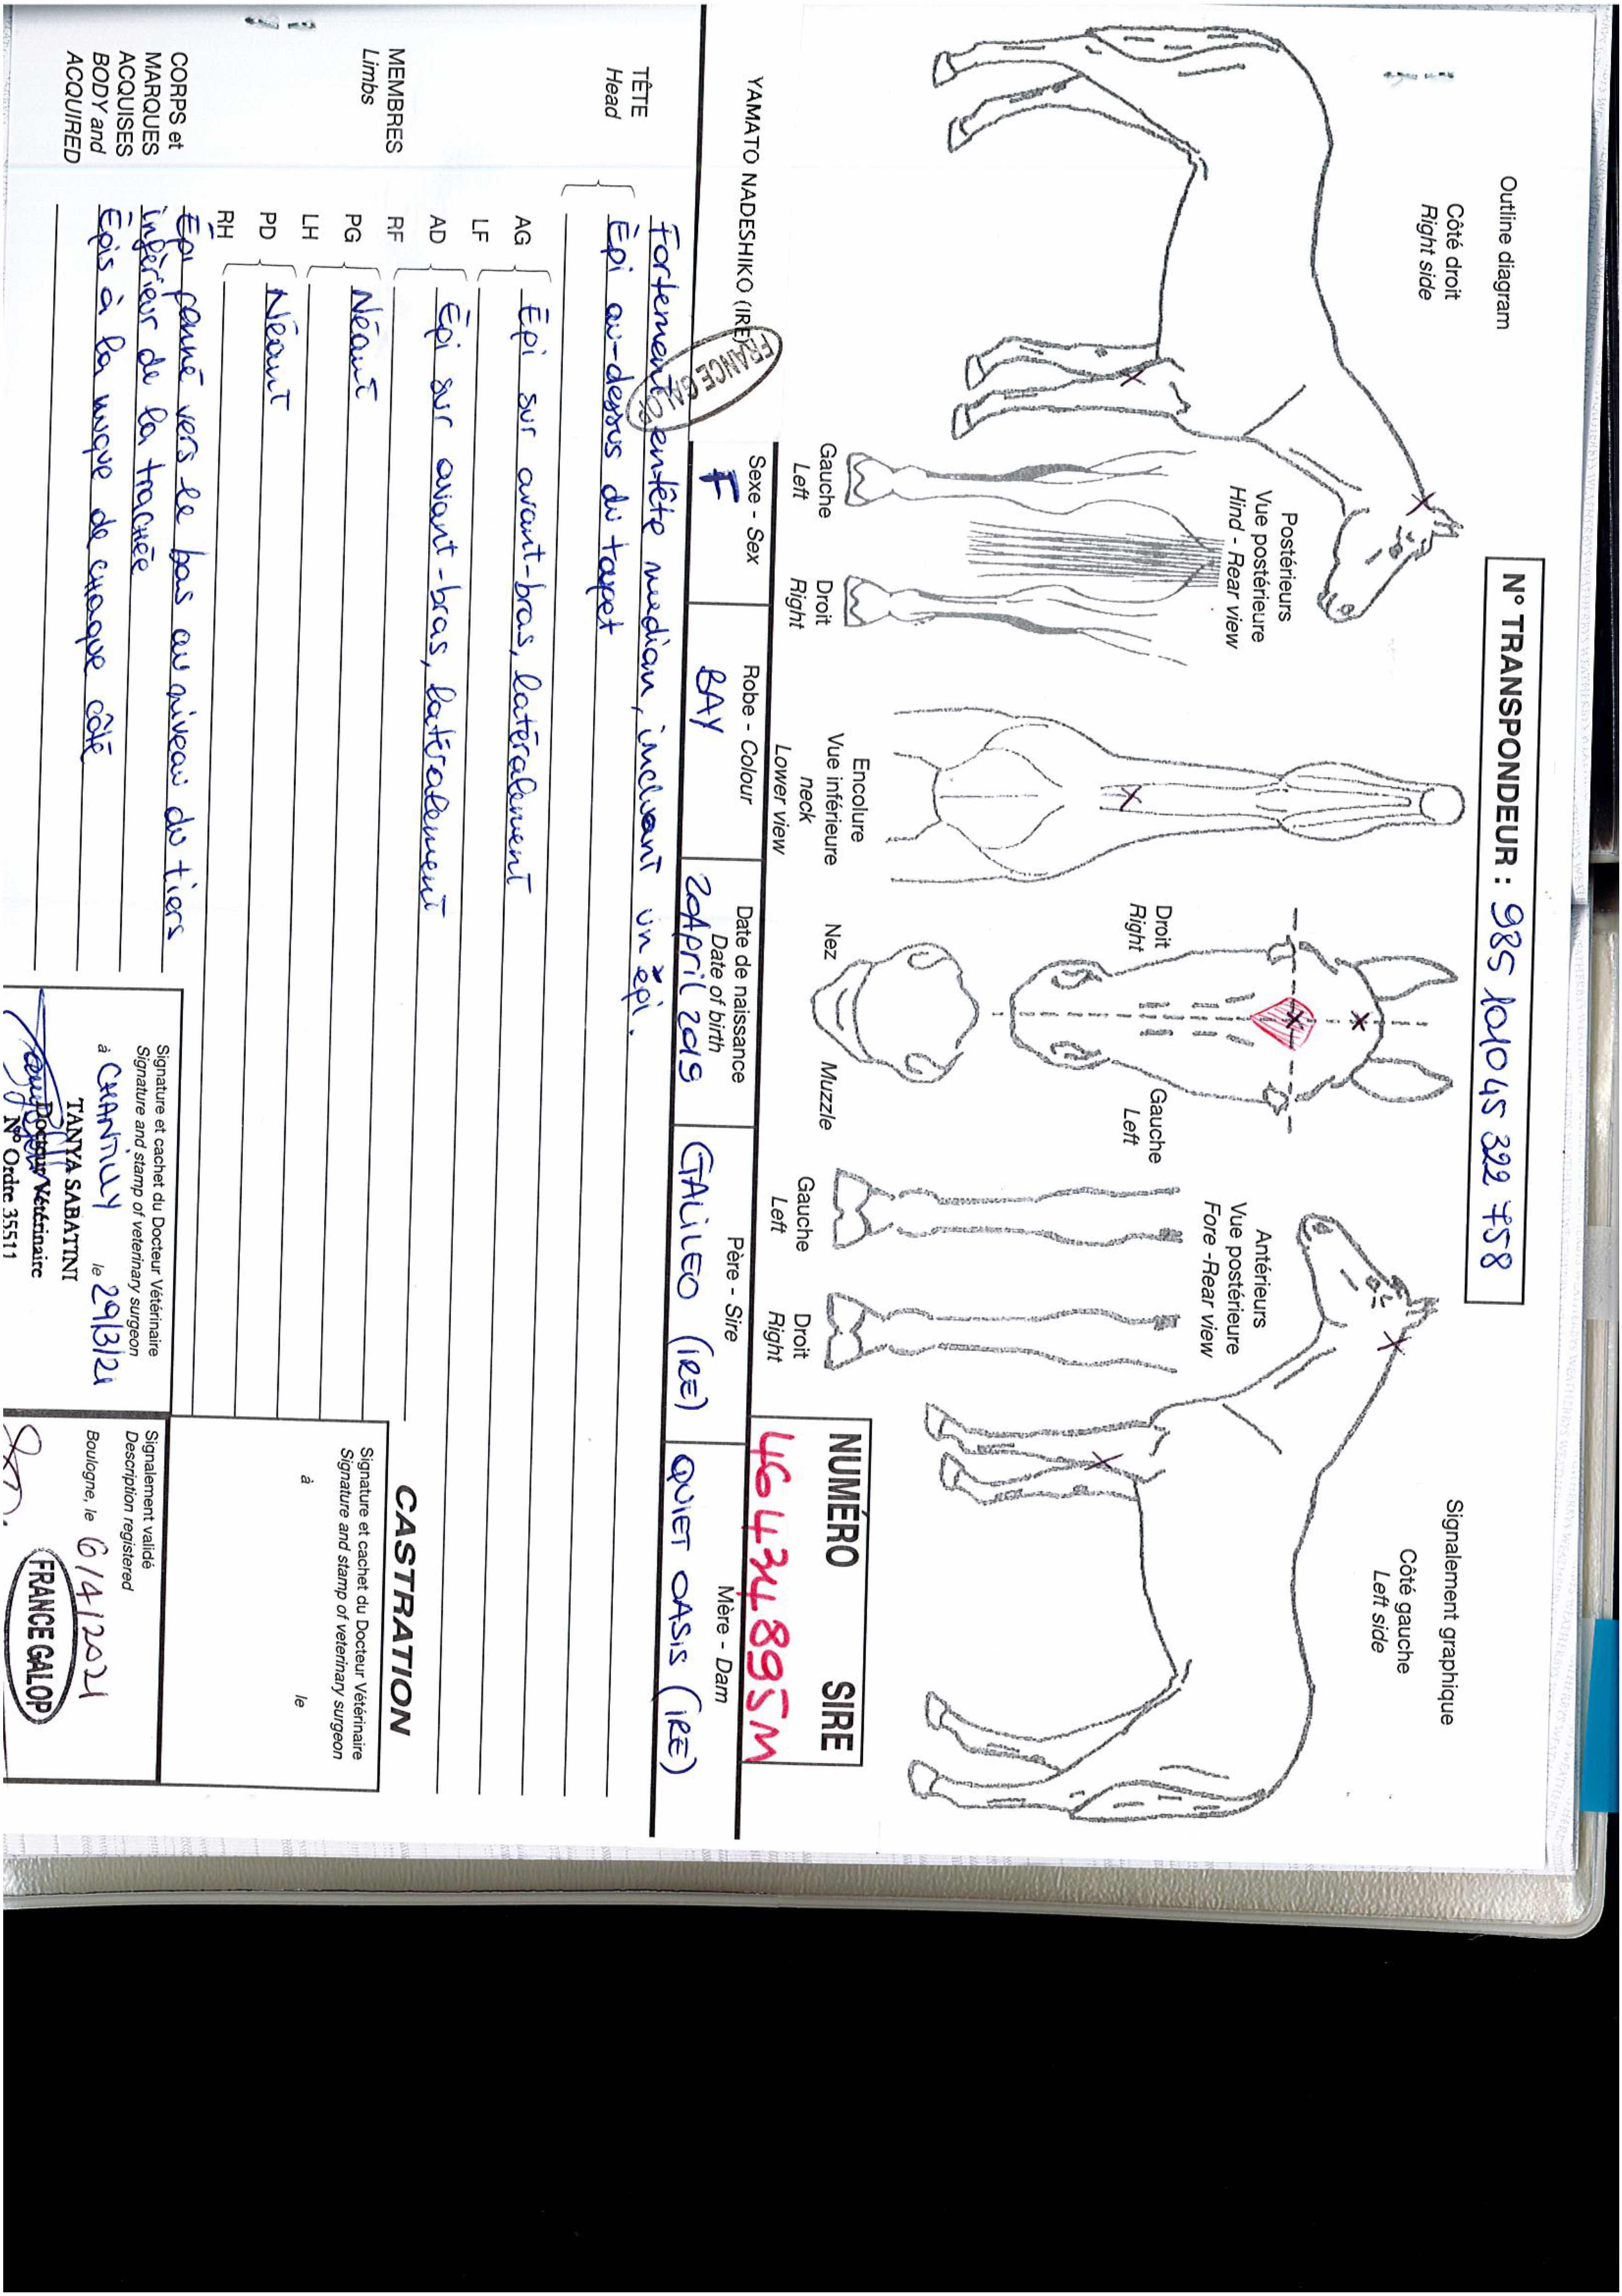 N° TRANSPONDEUR : 985 101045 322 758
Outline diagram
Signalement graphique
Côté droit
Right side
Côté gauche
Left side
Postérieurs
Vue postérieure
Hind - Rear view
Antérieurs
Vue postérieure
Fore -Rear view
Droit
Right
Gauche
Left
Gauche
Left
Droit
Right
Encolure
Vue inférieure
neck
Lower view
Nez
Muzzle
Gauche
Left
Droit
Right
NUMÉRO SIRE
46434895M
YAMATO NADESHIKO (IRE)
FRANCE GALOP
Sexe - Sex
F
Robe - Colour
BAY
Date de naissance
Date of birth
20April 2019
Père - Sire
GALILEO (IRE)
Mère - Dam
QUIET OASIS (IRE)
TÊTE
Head
Fortement en tête médian, incluant un épi.
Épi au-dessus du toupet
MEMBRES
Limbs
AG
LF
Épi sur avant-bras, latéralement
AD
RF
Épi sur avant-bras, latéralement
PG
LH
Néant
PD
RH
Néant
CORPS et
MARQUES
ACQUISES
BODY and
ACQUIRED
Épi penné vers le bas au niveau du tiers
inférieur de la trachée
Épis à la nuque de chaque côté
CASTRATION
Signature et cachet du Docteur Vétérinaire
Signature and stamp of veterinary surgeon
à
le
Signature et cachet du Docteur Vétérinaire
Signature and stamp of veterinary surgeon
à CHANTILLY le 29/3/21
TANYA SABATINI
Docteur Vétérinaire
N° Ordre 35511
Signalement validé
Description registered
Boulogne, le 6/4/2021
FRANCE GALOP